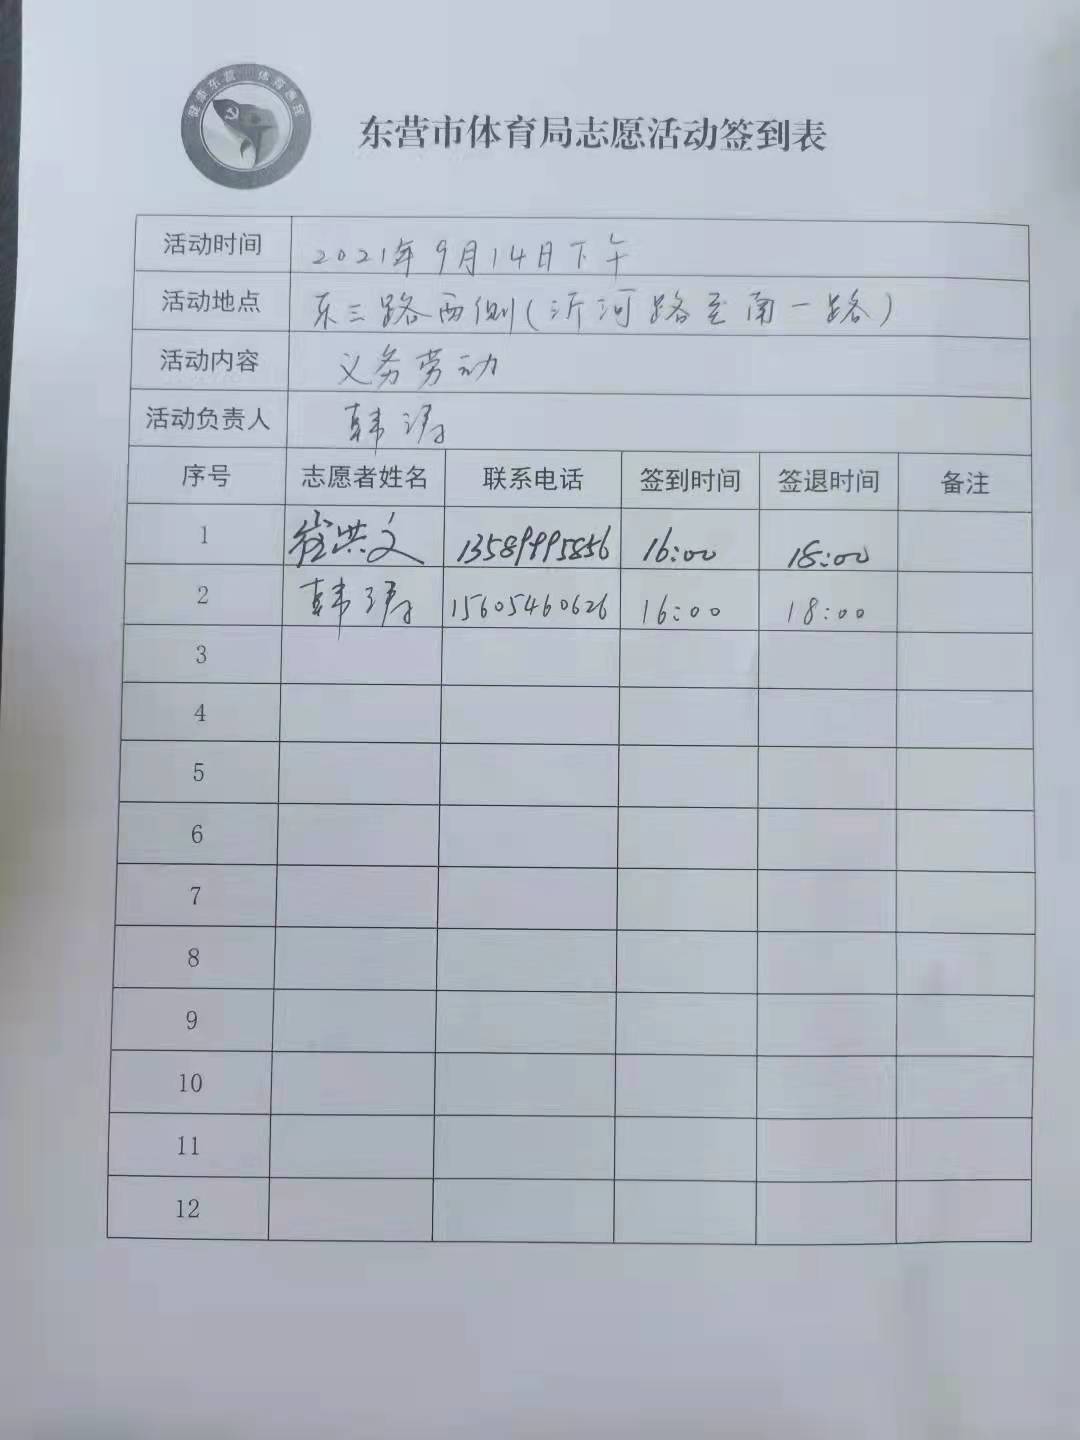 健康东营 体育惠民
东营市体育局志愿活动签到表
活动时间 2021年9月14日下午
活动地点 东三路西侧(沂河路至南一路)
活动内容 义务劳动
活动负责人 韩涛
序号 志愿者姓名 联系电话 签到时间 签退时间 备注
1 崔洪文 13589995856 16:00 18:00
2 韩涛 15605460626 16:00 18:00
3
4
5
6
7
8
9
10
11
12